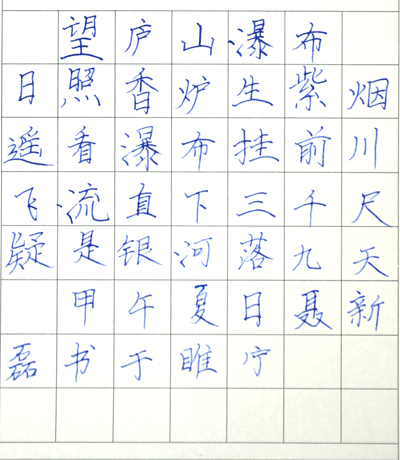 望庐山瀑布
日照香炉生紫烟
遥看瀑布挂前川
飞流直下三千尺
疑是银河落九天
甲午夏日聂新
磊书于睢宁